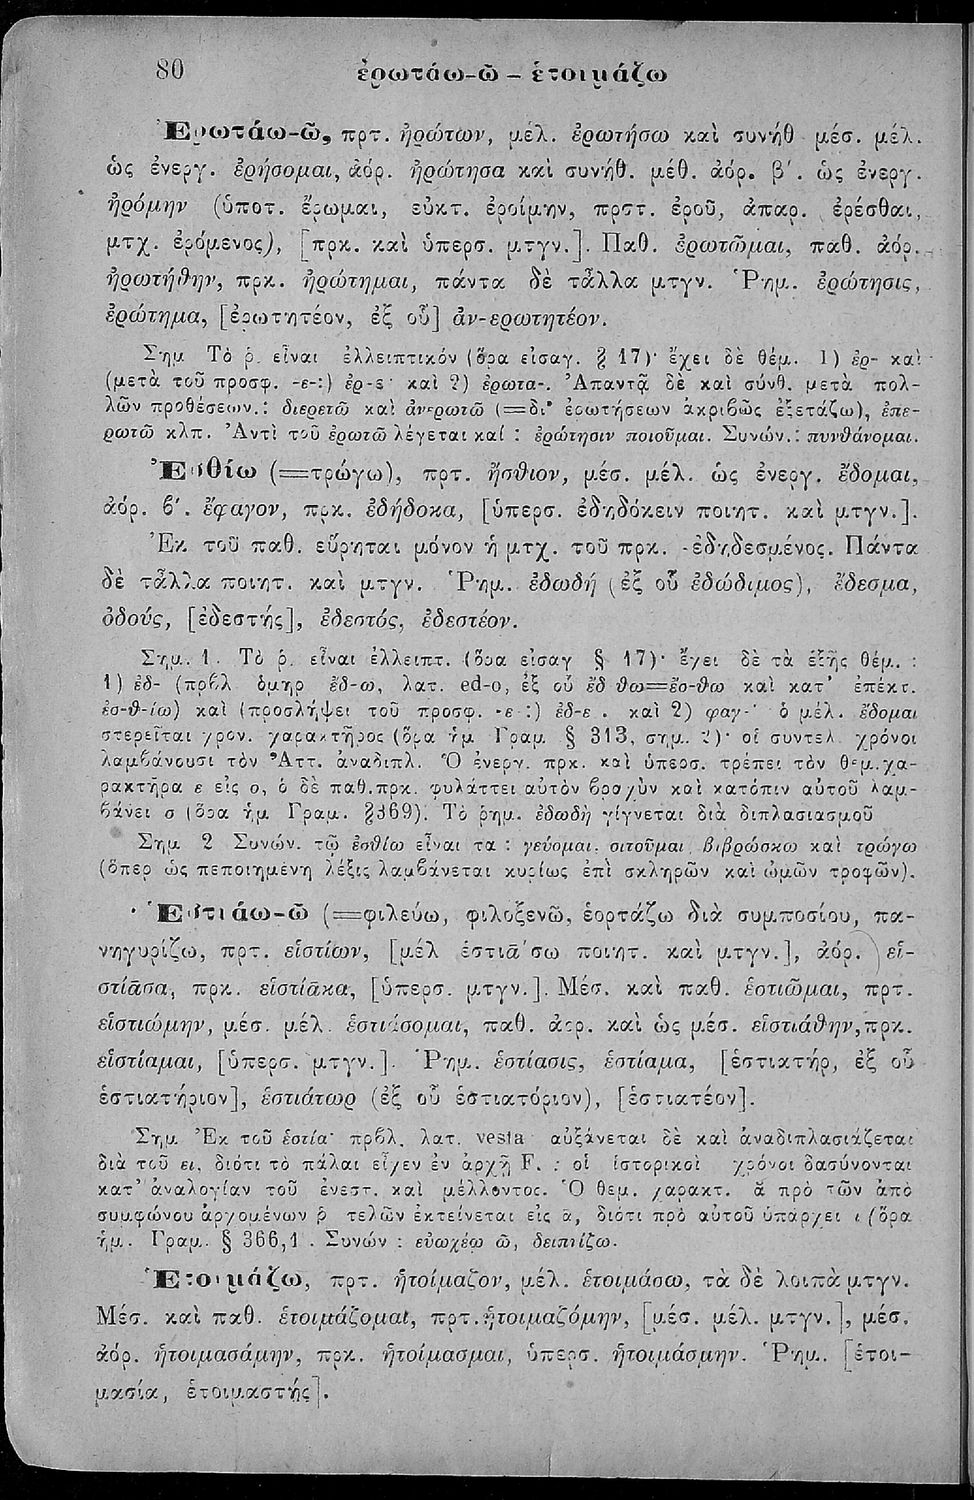 80 ἐρωτάω-ῶ – ἑτοιμάζω
Ἐρωτάω-ῶ, πρτ. ἠρώτων, μέλ. ἐρωτήσω καὶ συνήθ μέσ. μέλ.
ὡς ἐνεργ. ἐρήσομαι, ἀόρ. ἠρώτησα καὶ συνήθ. μέθ. ἀόρ. β΄. ὡς ἐνεργ.
ἠρόμην (ὑποτ. ἔρωμαι, εὐκτ. ἐροίμην, προστ. ἐροῦ, ἀπαρ. ἐρέσθαι,
μτχ. ἐρόμενος), [πρκ. καὶ ὑπερσ. μτγν.]. Παθ. ἐρωτῶμαι, παθ. ἀόρ.
ἠρωτήθην, πρκ. ἠρώτημαι, πάντα δὲ τἆλλα μτγν. Ῥημ. ἐρώτησις,
ἐρώτημα, [ἐρωτητέον, ἐξ οὗ] ἀν-ερωτητέον.
Σημ Τὸ ῥ. εἶναι ἐλλειπτικόν (ὅρα εἰσαγ. § 17)· ἔχει δὲ θέμ. 1) ἐρ- καὶ
(μετὰ τοῦ προσφ. -ε-:) ἐρ-ε· καὶ 2) ἐρωτα-. Ἀπαντᾷ δὲ καὶ σύνθ. μετὰ πολ-
λῶν προθέσεων.: διερετῶ καὶ ἀνερωτῶ (=δι' ἐρωτήσεων ἀκριβῶς ἐξετάζω), ἐπε-
ρωτῶ κλπ. Ἀντὶ τοῦ ἐρωτῶ λέγεται καί : ἐρώτησιν ποιοῦμαι. Συνών.: πυνθάνομαι.
Ἐσθίω (=τρώγω), πρτ. ἤσθιον, μέσ. μέλ. ὡς ἐνεργ. ἔδομαι,
ἀόρ. β΄. ἔφαγον, πρκ. ἐδήδοκα, [ὑπερσ. ἐδηδόκειν ποιητ. καὶ μτγν.].
Ἐκ τοῦ παθ. εὕρηται μόνον ἡ μτχ. τοῦ πρκ. -ἐδηδεσμένος. Πάντα
δὲ τἆλλα ποιητ. καὶ μτγν. Ῥημ. ἐδωδή (ἐξ οὗ ἐδώδιμος), ἔδεσμα,
ὀδούς, [ἐδεστής], ἐδεστός, ἐδεστέον.
Σημ. 1. Τὸ ῥ. εἶναι ἐλλειπτ. (ὅρα εἰσαγ § 17)· ἔχει δὲ τὰ ἑξῆς θέμ. :
1) ἐδ- (πρβλ ὁμηρ ἔδ-ω, λατ. ed-o, ἐξ οὗ ἔδ θω=ἔσ-θω καὶ κατ' ἐπέκτ.
ἐσ-θ-ίω) καὶ (προσλήψει τοῦ προσφ. -ε-:) ἐδ-ε . καὶ 2) φαγ-· ὁ μέλ. ἔδομαι
στερεῖται χρον. χαρακτῆρος (ὅρα ἡμ Γραμ. § 313, σημ. 2)· οἱ συντελ χρόνοι
λαμβάνουσι τὸν Ἀττ. ἀναδιπλ. Ὁ ἐνεργ. πρκ. καὶ ὑπερσ. τρέπει τὸν θεμ. χα-
ρακτῆρα ε εἰς ο, ὁ δὲ παθ. πρκ. φυλάττει αὐτὸν βραχὺν καὶ κατόπιν αὐτοῦ λαμ-
βάνει σ (ὅρα ἡμ Γραμ. §369). Τὸ ῥημ. ἐδωδὴ γίγνεται διὰ διπλασιασμοῦ
Σημ 2 Συνών. τῷ ἐσθίω εἶναι τα : γεύομαι, σιτοῦμαι, βιβρώσκω καὶ τρώγω
(ὅπερ ὡς πεποιημένη λέξις λαμβάνεται κυρίως ἐπὶ σκληρῶν καὶ ὠμῶν τροφῶν).
Ἑστιάω-ῶ (=φιλεύω, φιλοξενῶ, ἑορτάζω διὰ συμποσίου, πα-
νηγυρίζω, πρτ. εἱστίων, [μέλ ἑστιᾱ́σω ποιητ. καὶ μτγν.], ἀόρ. εἱ-
στίᾱσα, πρκ. εἱστίᾱκα, [ὑπερσ. μτγν.]. Μέσ. καὶ παθ. ἑστιῶμαι, πρτ.
εἱστιώμην, μέσ. μέλ. ἑστιάσομαι, παθ. ἀορ. καὶ ὡς μέσ. εἱστιάθην, πρκ.
εἱστίαμαι, [ὑπερσ. μτγν.]. Ῥημ. ἑστίασις, ἑστίαμα, [ἑστιατήρ, ἐξ οὗ
ἑστιατήριον], ἑστιάτωρ (ἐξ οὗ ἑστιατόριον), [ἑστιατέον].
Σημ Ἐκ τοῦ ἑστία· πρβλ. λατ. vesta αὐξάνεται δὲ καὶ ἀναδιπλασιάζεται
διὰ τοῦ ει, διότι τὸ πάλαι εἶχεν ἐν ἀρχῇ F. : οἱ ἱστορικοὶ χρόνοι δασύνονται
κατ' ἀναλογίαν τοῦ ἐνεστ. καὶ μέλλοντος. Ὁ θεμ. χαρακτ. ᾰ πρὸ τῶν ἀπὸ
συμφώνου ἀρχομένων ῥ τελῶν ἐκτείνεται εἰς ᾱ, διότι πρὸ αὐτοῦ ὑπάρχει ι (ὅρα
ἡμ. Γραμ. § 366,1 . Συνών : εὐωχέω ῶ, δειπνίζω.
Ἑτοιμάζω, πρτ. ἡτοίμαζον, μέλ. ἑτοιμάσω, τὰ δὲ λοιπὰ μτγν.
Μέσ. καὶ παθ. ἑτοιμάζομαι, πρτ. ἡτοιμαζόμην, [μέσ. μέλ. μτγν.], μέσ.
ἀόρ. ἡτοιμασάμην, πρκ. ἡτοίμασμαι, ὑπερσ. ἡτοιμάσμην. Ῥημ. [ἑτοι-
μασία, ἑτοιμαστής].